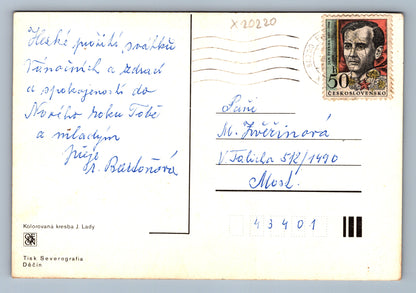 X 20220
Hezké prožití svátků
Vánočních a zdraví
a spokojenosti do
Nového roku Tobě
a mladým
přeje
Bartoňová
50
ČESKOSLOVENSKO
Paní
M. Zvěřinová
V Talichа 5K/1490
Most.
43401
Kolorovaná kresba J. Lady
Tisk Severografia
Děčín